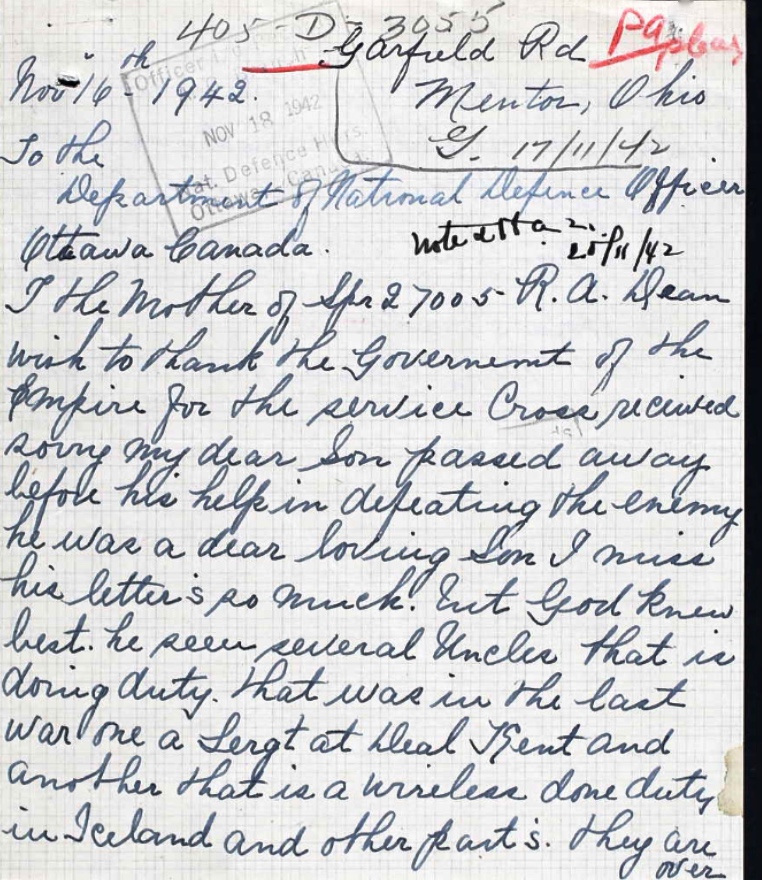 405-D-3055
Garfield Rd
Nov 16th 1942.
Mentor, Ohio
G. 17/11/42
NOV 18 1942
Nat. Defence Hqrs.
Ottawa, Canada
To the
Department of National Defence Officer
Ottawa Canada.
noted
25/11/42
I the Mother of Spr 27005 R. A. Dean
wish to thank the Governemt of the
Empire for the service Cross recieved
sorry my dear Son passed away
before his help in defeating the enemy
he was a dear loving Son I miss
his letter's so much. But God knew
best. he seen several Uncles that is
doing duty. that was in the last
war one a Sergt at Deal Kent and
another that is a wireless done duty
in Iceland and other part's. they are
over